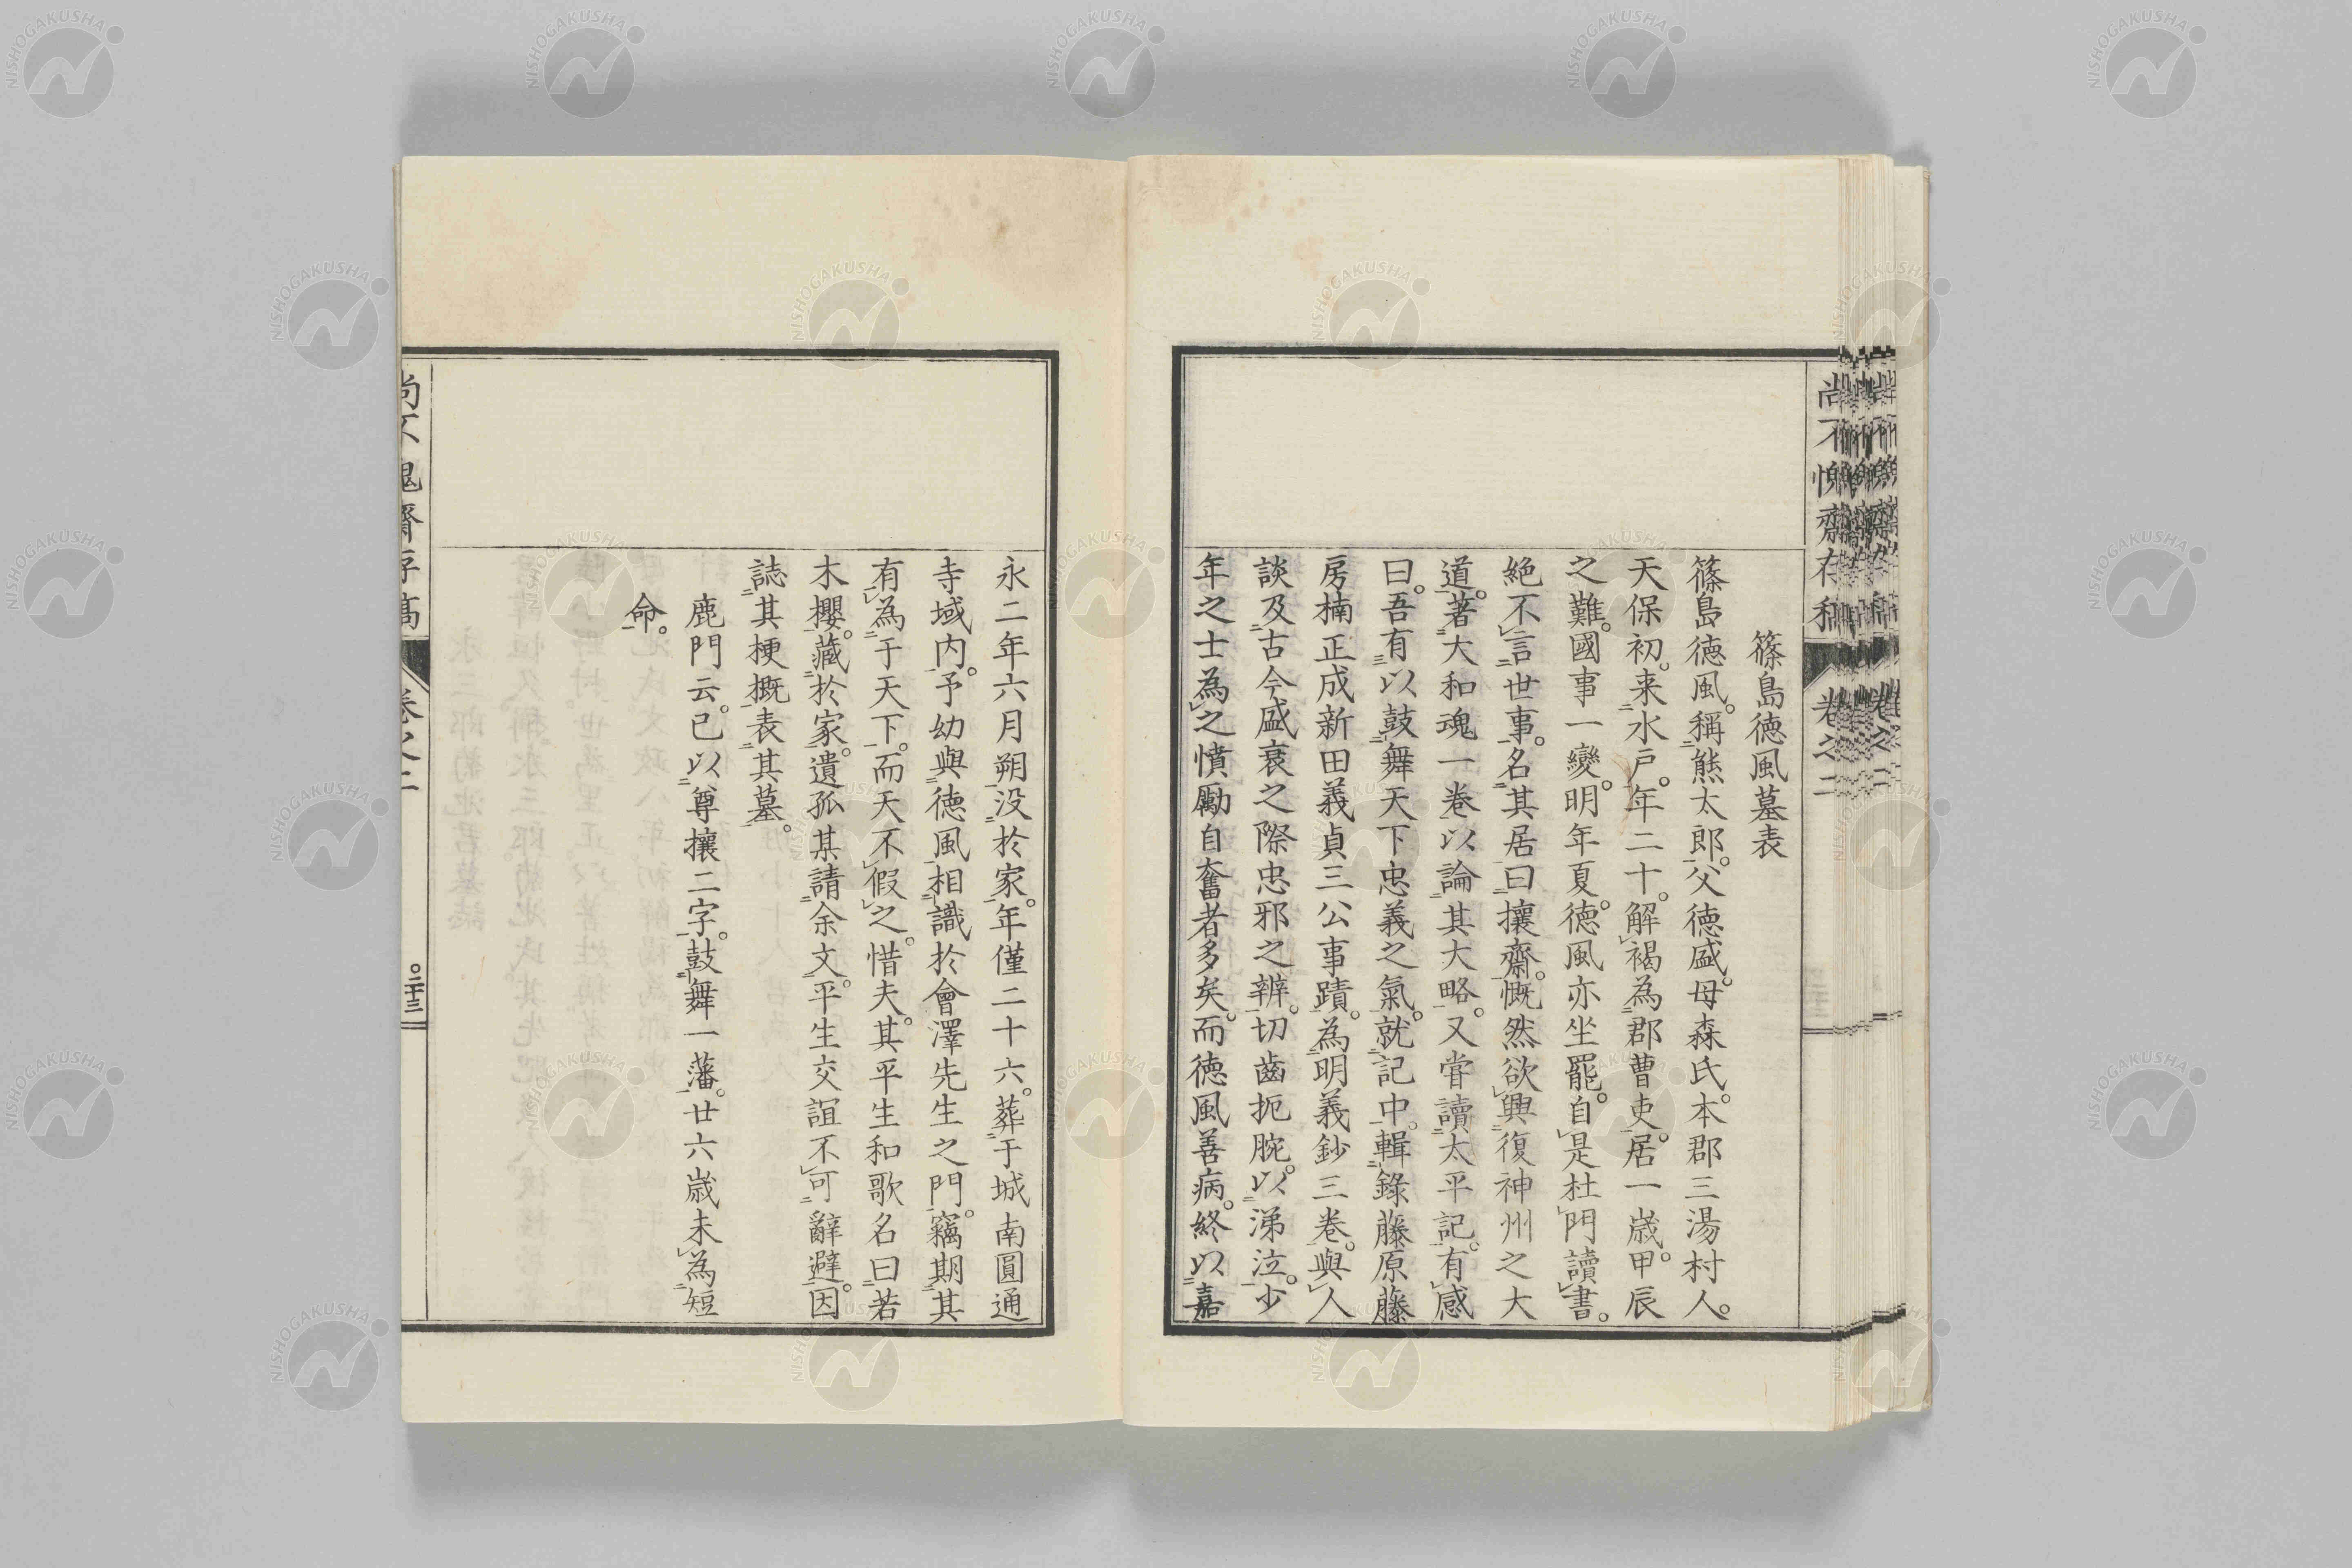 篠島徳風墓表
篠島徳風。稱熊太郎。父徳盛。母森氏。本郡三湯村人。
天保初。来水戸。年二十。解褐為郡曹吏。居一歳。甲辰
之難。國事一變。明年夏。徳風亦坐罷。自是杜門讀書。
絶不言世事。名其居曰攘齋。慨然欲興復神州之大
道。著大和魂一巻以論其大略。又甞讀太平記。有感
曰。吾有以鼓舞天下忠義之氣。就記中。輯錄藤原藤
房楠正成新田義貞三公事蹟。為明義鈔三巻。與人
談及古今盛衰之際忠邪之辨。切齒扼腕。以涕泣。少
年之士為之憤勵自奮者多矣。而徳風善病。終以嘉
永二年六月朔没於家。年僅二十六。葬于城南圓通
寺域内。予幼與徳風相識於會澤先生之門。竊期其
有為于天下。而天不假之。惜夫。其平生和歌名曰若
木櫻。藏於家。遺孤某請余文。平生交誼不可辭避。因
誌其梗概表其墓。
鹿門云。已以尊攘二字。鼓舞一藩。廿六歳未為短
命。
尚不愧齋存稿
卷之二
二十三
NISHOGAKUSHA